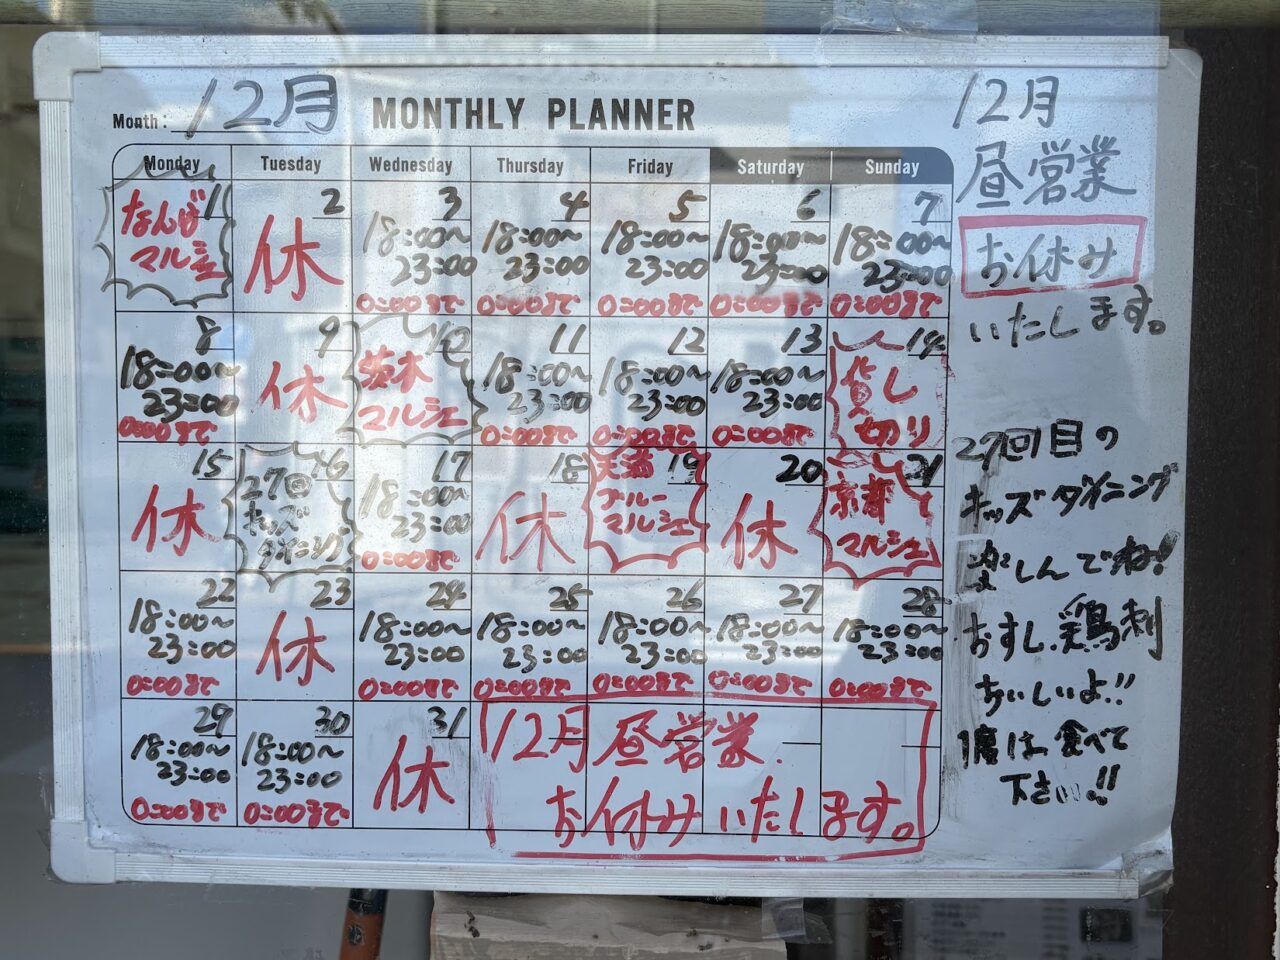 Month: 12月 MONTHLY PLANNER
Monday Tuesday Wednesday Thursday Friday Saturday Sunday
1 なんば マルシェ
2 休
3 18:00~ 23:00 0:00まで
4 18:00~ 23:00 0:00まで
5 18:00~ 23:00 0:00まで
6 18:00~ 23:00 0:00まで
7 18:00~ 23:00 0:00まで
8 18:00~ 23:00 0:00まで
9 休
10 茨木 マルシェ
11 18:00~ 23:00 0:00まで
12 18:00~ 23:00 0:00まで
13 18:00~ 23:00 0:00まで
14 貸し 切り
15 休
16 27回 キッズ ダイニング
17 18:00~ 23:00 0:00まで
18 休
19 天満 ブルー マルシェ
20 休
21 京都 マルシェ
22 18:00~ 23:00 0:00まで
23 休
24 18:00~ 23:00 0:00まで
25 18:00~ 23:00 0:00まで
26 18:00~ 23:00 0:00まで
27 18:00~ 23:00 0:00まで
28 18:00~ 23:00 0:00まで
29 18:00~ 23:00 0:00まで
30 18:00~ 23:00 0:00まで
31 休
12月昼営業.
お休みいたします。
12月
昼営業
お休み
いたします。
27回目の
キッズダイニング
楽しんでね!
おすし、鶏刺
おいしいよ!!
1度は食べて
下さい!!